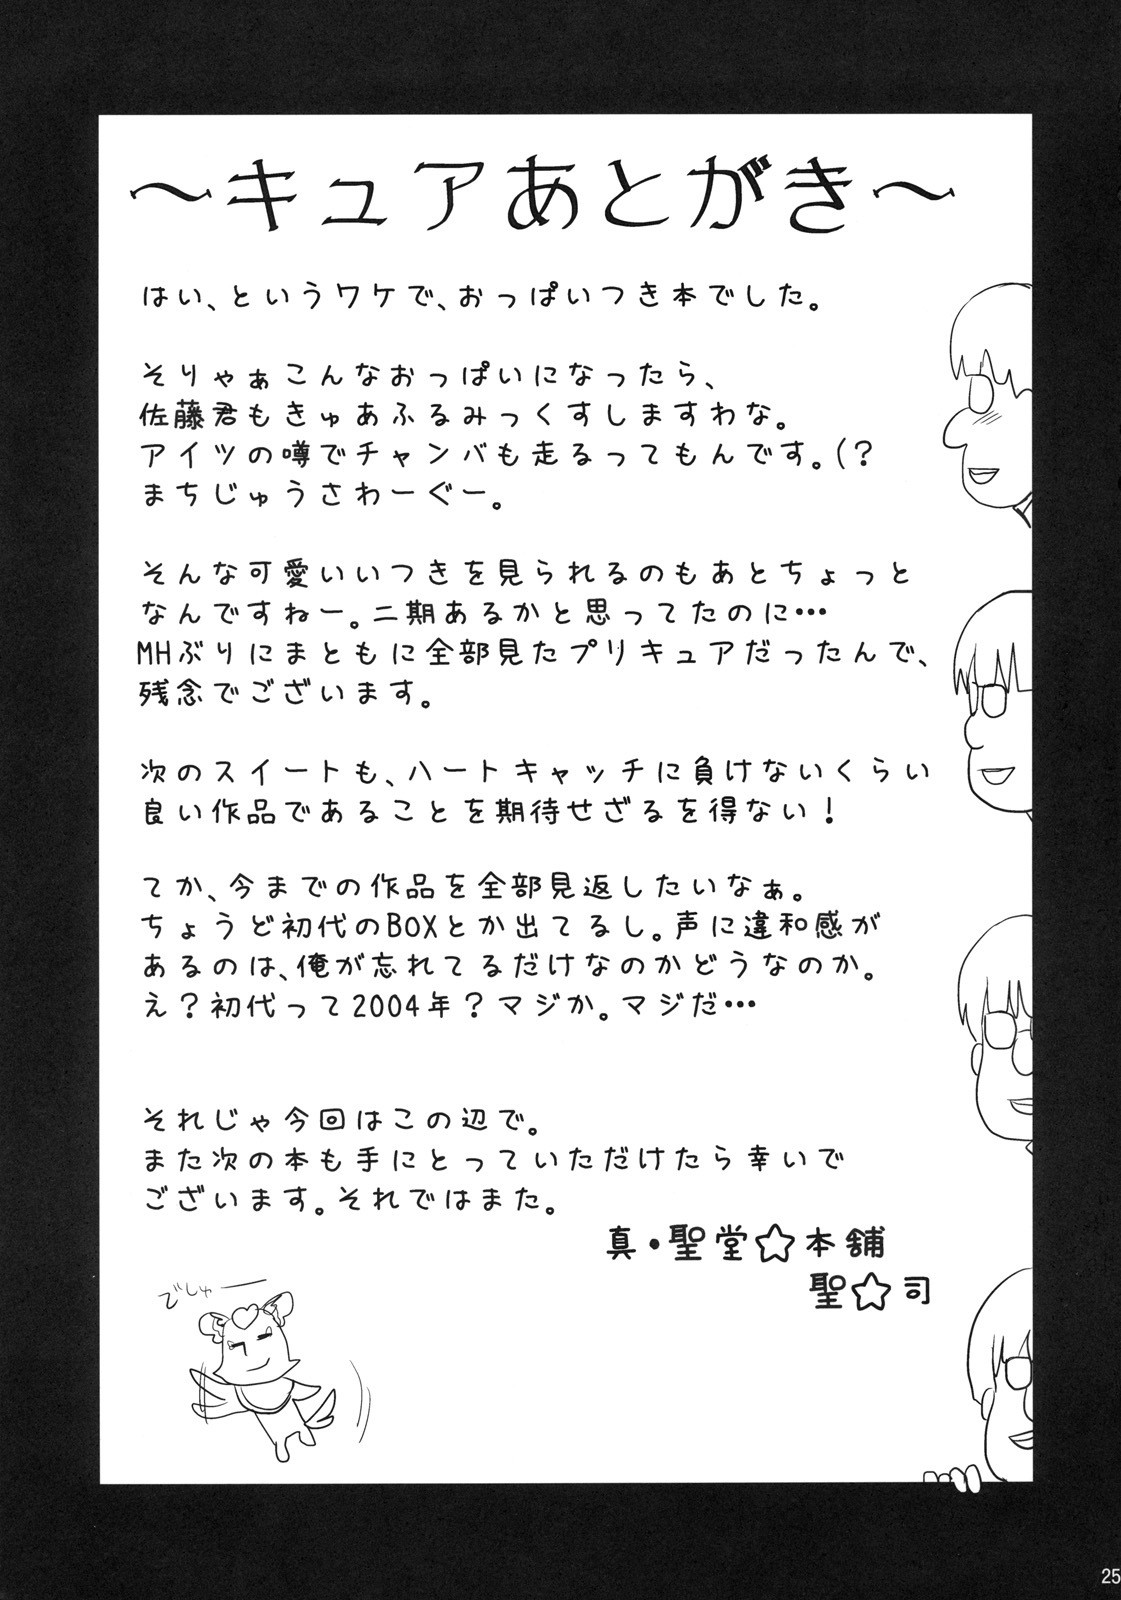 ～キュアあとがき～
はい、というワケで、おっぱいつき本でした。
そりゃぁこんなおっぱいになったら、
佐藤君もきゅあふるみっくすしますわな。
アイツの噂でチャンバも走るってもんです。(?
まちじゅうさわーぐー。
そんな可愛いいつきを見られるのもあとちょっと
なんですねー。二期あるかと思ってたのに…
MHぶりにまともに全部見たプリキュアだったんで、
残念でございます。
次のスイートも、ハートキャッチに負けないくらい
良い作品であることを期待せざるを得ない！
てか、今までの作品を全部見返したいなぁ。
ちょうど初代のBOXとか出てるし。声に違和感が
あるのは、俺が忘れてるだけなのかどうなのか。
え？初代って2004年？マジか。マジだ…
それじゃ今回はこの辺で。
また次の本も手にとっていただけたら幸いで
ございます。それではまた。
真・聖堂☆本舗
聖☆司
でしゅー
25